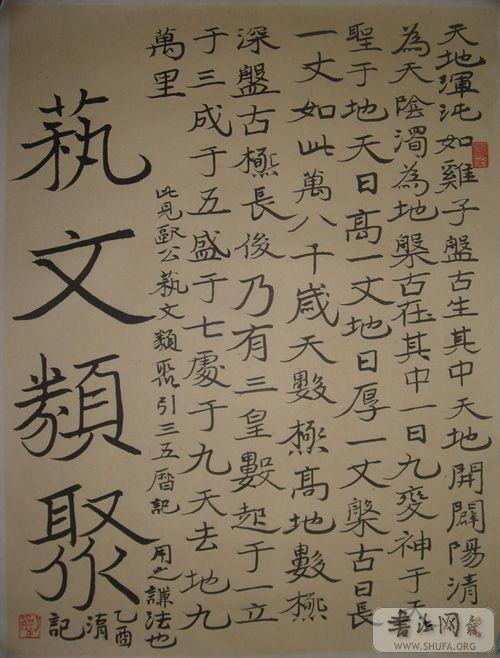 天地渾沌如雞子盤古生其中天地開闢陽清
為天陰濁為地槃古在其中一日九變神于天
聖于地天日高一丈地日厚一丈槃古日長
一丈如此萬八千歲天數極高地數極
深盤古極長後乃有三皇數起于一立
于三成于五盛于七處于九天去地九
萬里
此見歐公藝文類聚引三五曆記 用之謙法也
藝文類聚
乙酉
記
书法网
WWW.SHUFA.ORG